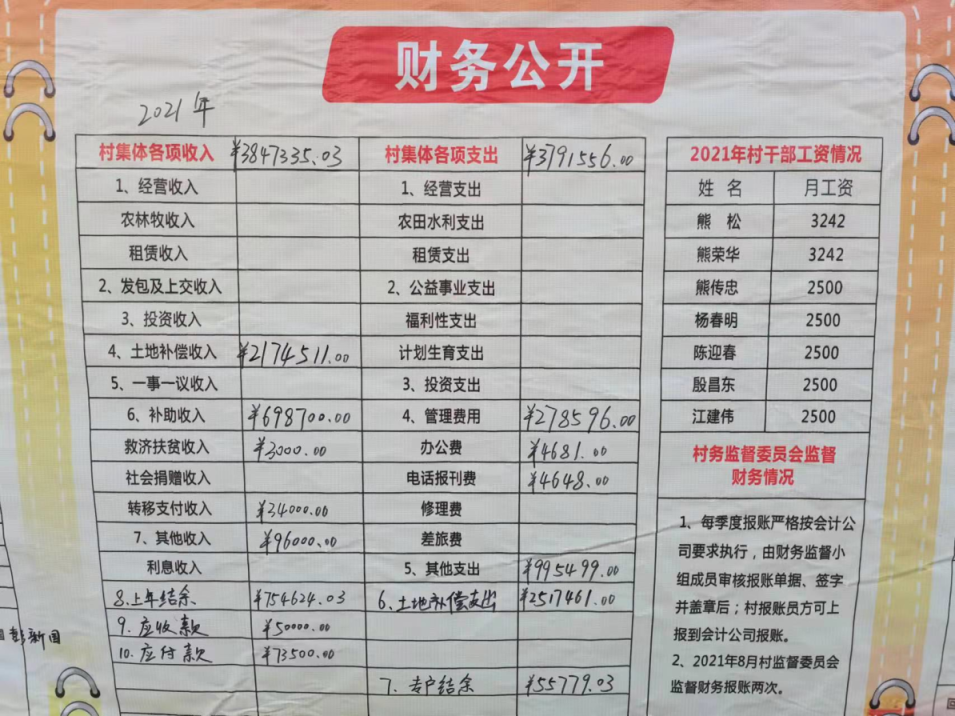 财务公开
2021年
村集体各项收入 ¥3847335.03 村集体各项支出 ¥3791556.00
1、经营收入 1、经营支出
农林牧收入 农田水利支出
租赁收入 租赁支出
2、发包及上交收入 2、公益事业支出
3、投资收入 福利性支出
4、土地补偿收入 ¥2174511.00 计划生育支出
5、一事一议收入 3、投资支出
6、补助收入 ¥698700.00 4、管理费用 ¥278596.00
救济扶贫收入 ¥3000.00 办公费 ¥4681.00
社会捐赠收入 电话报刊费 ¥4648.00
转移支付收入 ¥34000.00 修理费
7、其他收入 ¥96000.00 差旅费
利息收入 5、其他支出 ¥995499.00
8.上年结余 ¥754624.03 6.土地补偿支出 ¥2517461.00
9.应收款 ¥50000.00
10.应付款 ¥73500.00
7.专户结余 ¥55779.03
2021年村干部工资情况
姓名 月工资
熊松 3242
熊荣华 3242
熊传忠 2500
杨春明 2500
陈迎春 2500
殷昌东 2500
江建伟 2500
村务监督委员会监督
财务情况
1、每季度报账严格按会计公
司要求执行，由财务监督小
组成员审核报账单据、签字
并盖章后；村报账员方可上
报到会计公司报账。
2、2021年8月村监督委员会
监督财务报账两次。
彭新国